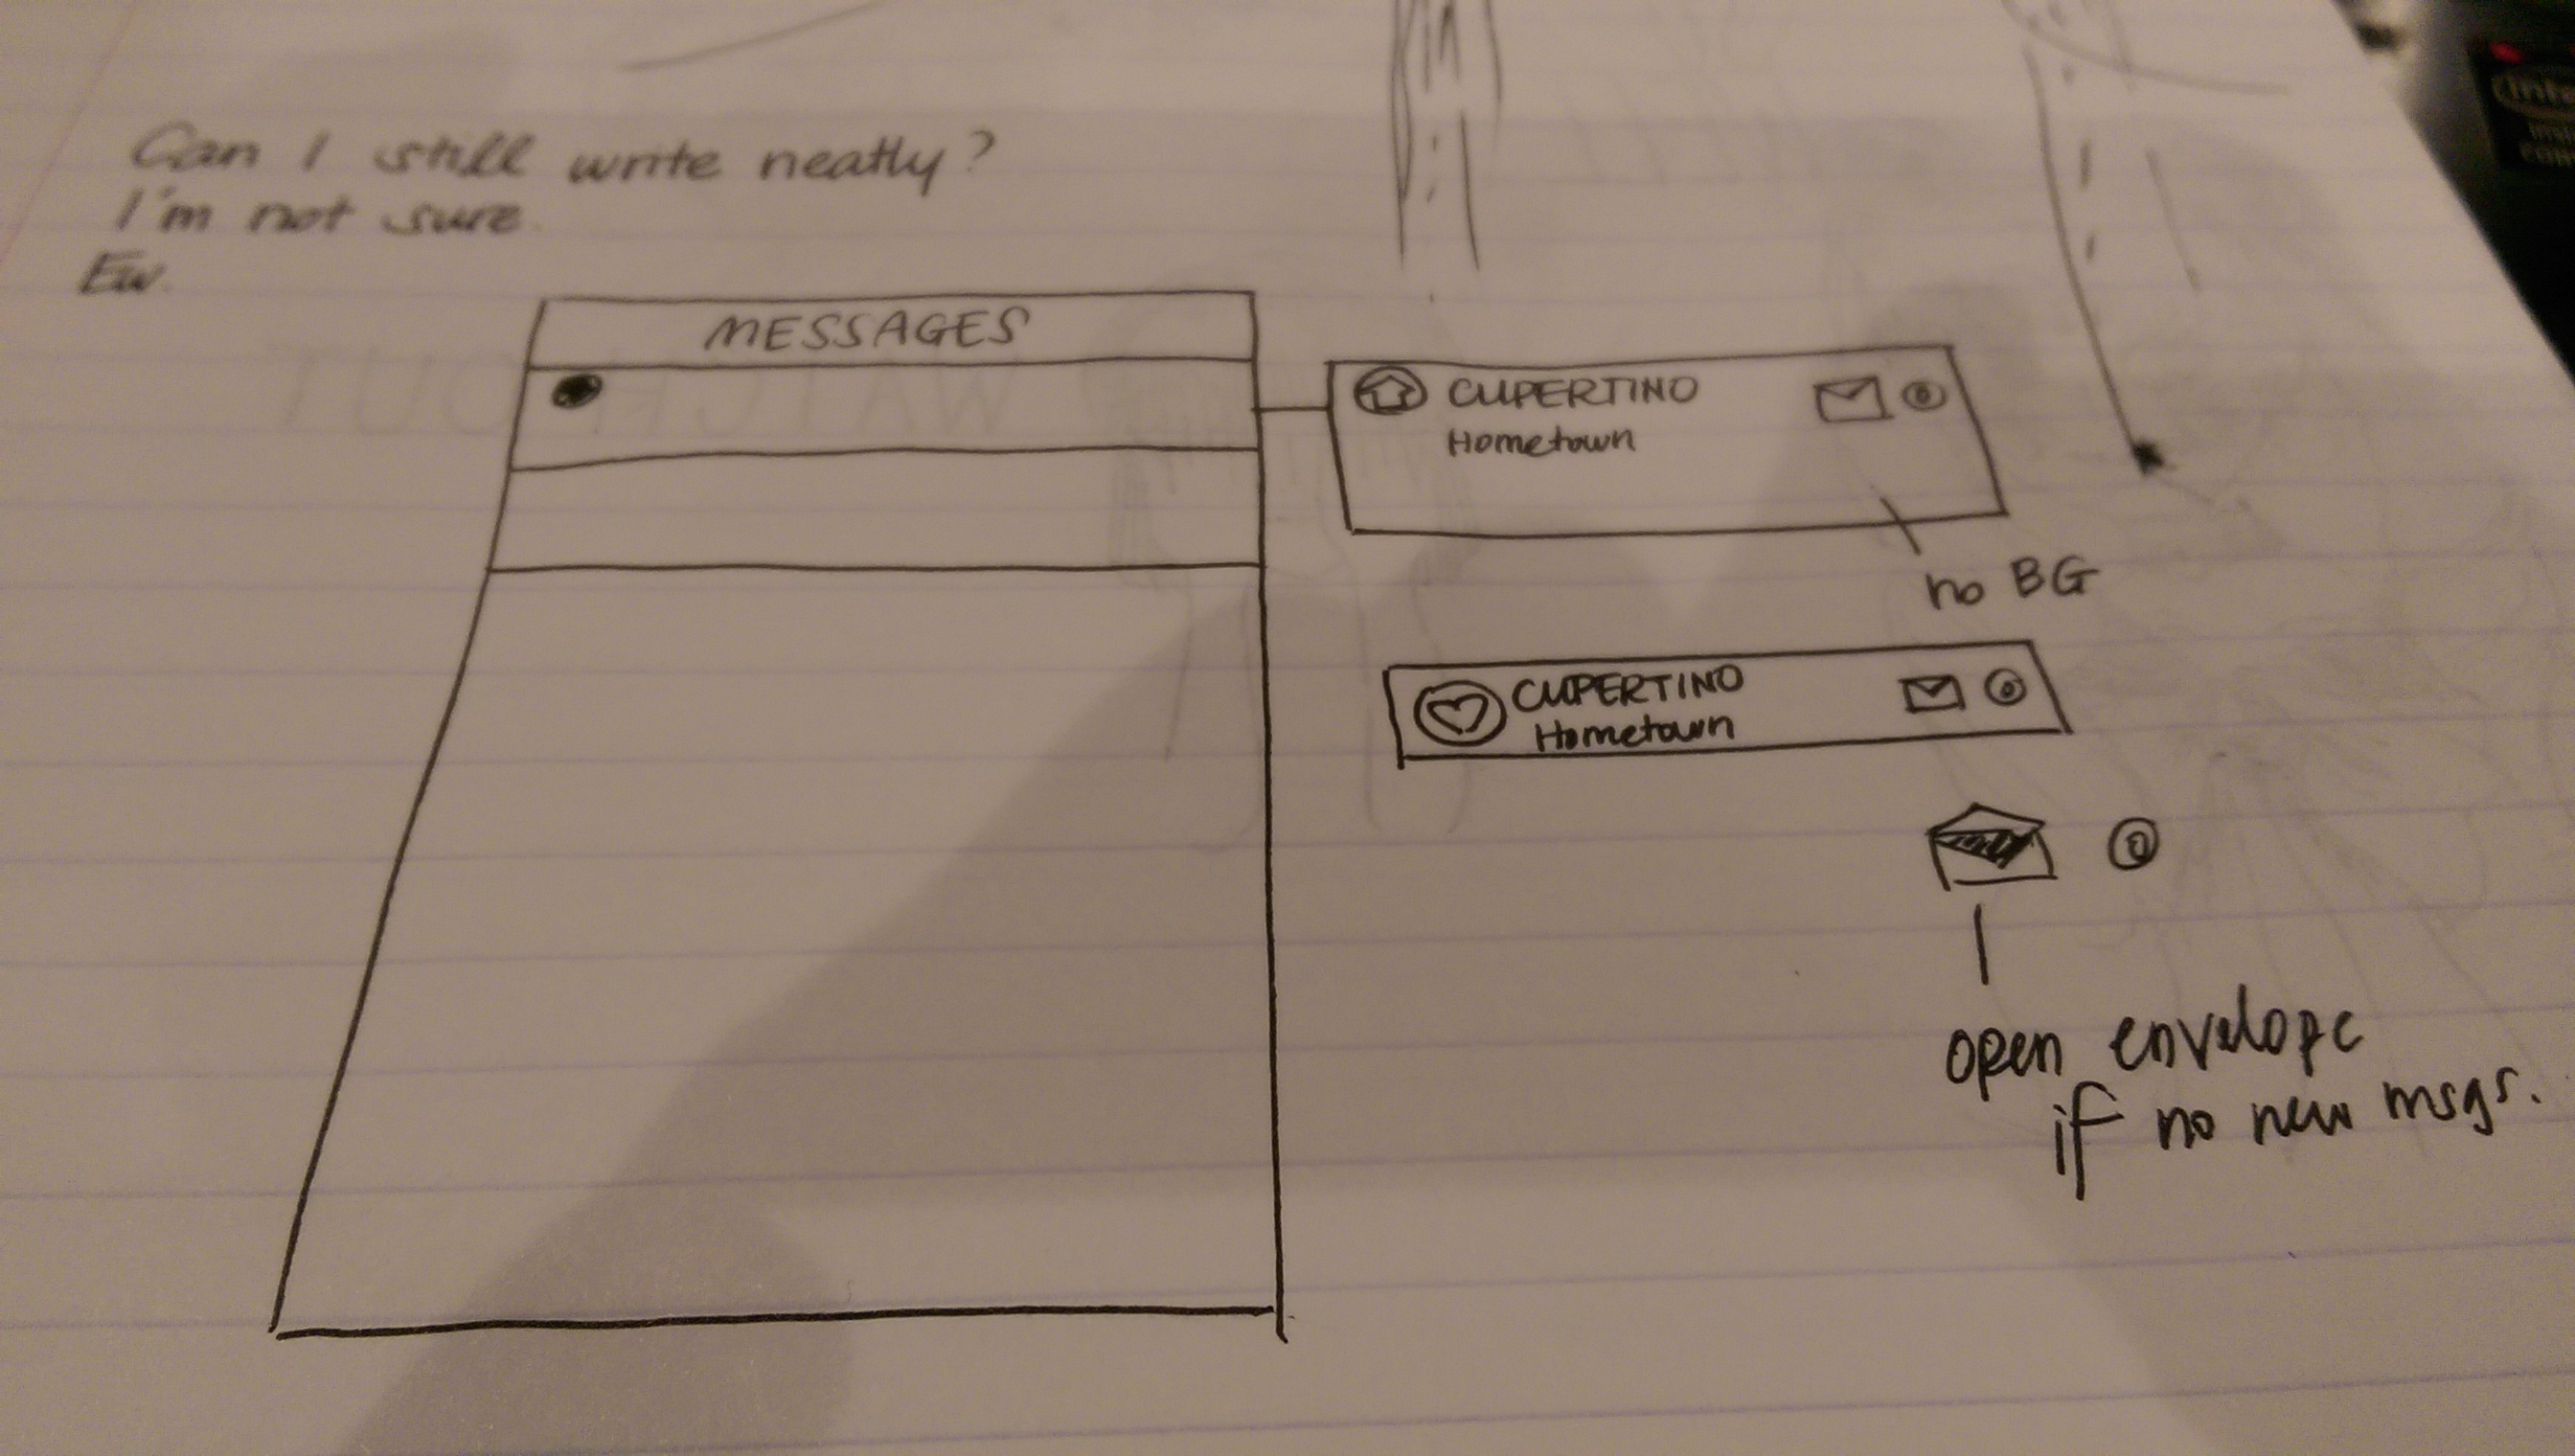 Can I still write neatly?
I'm not sure.
Ew.
MESSAGES
CUPERTINO
Hometown
no BG
CUPERTINO
Hometown
open envelope
if no new msgs.
WATCH OUT